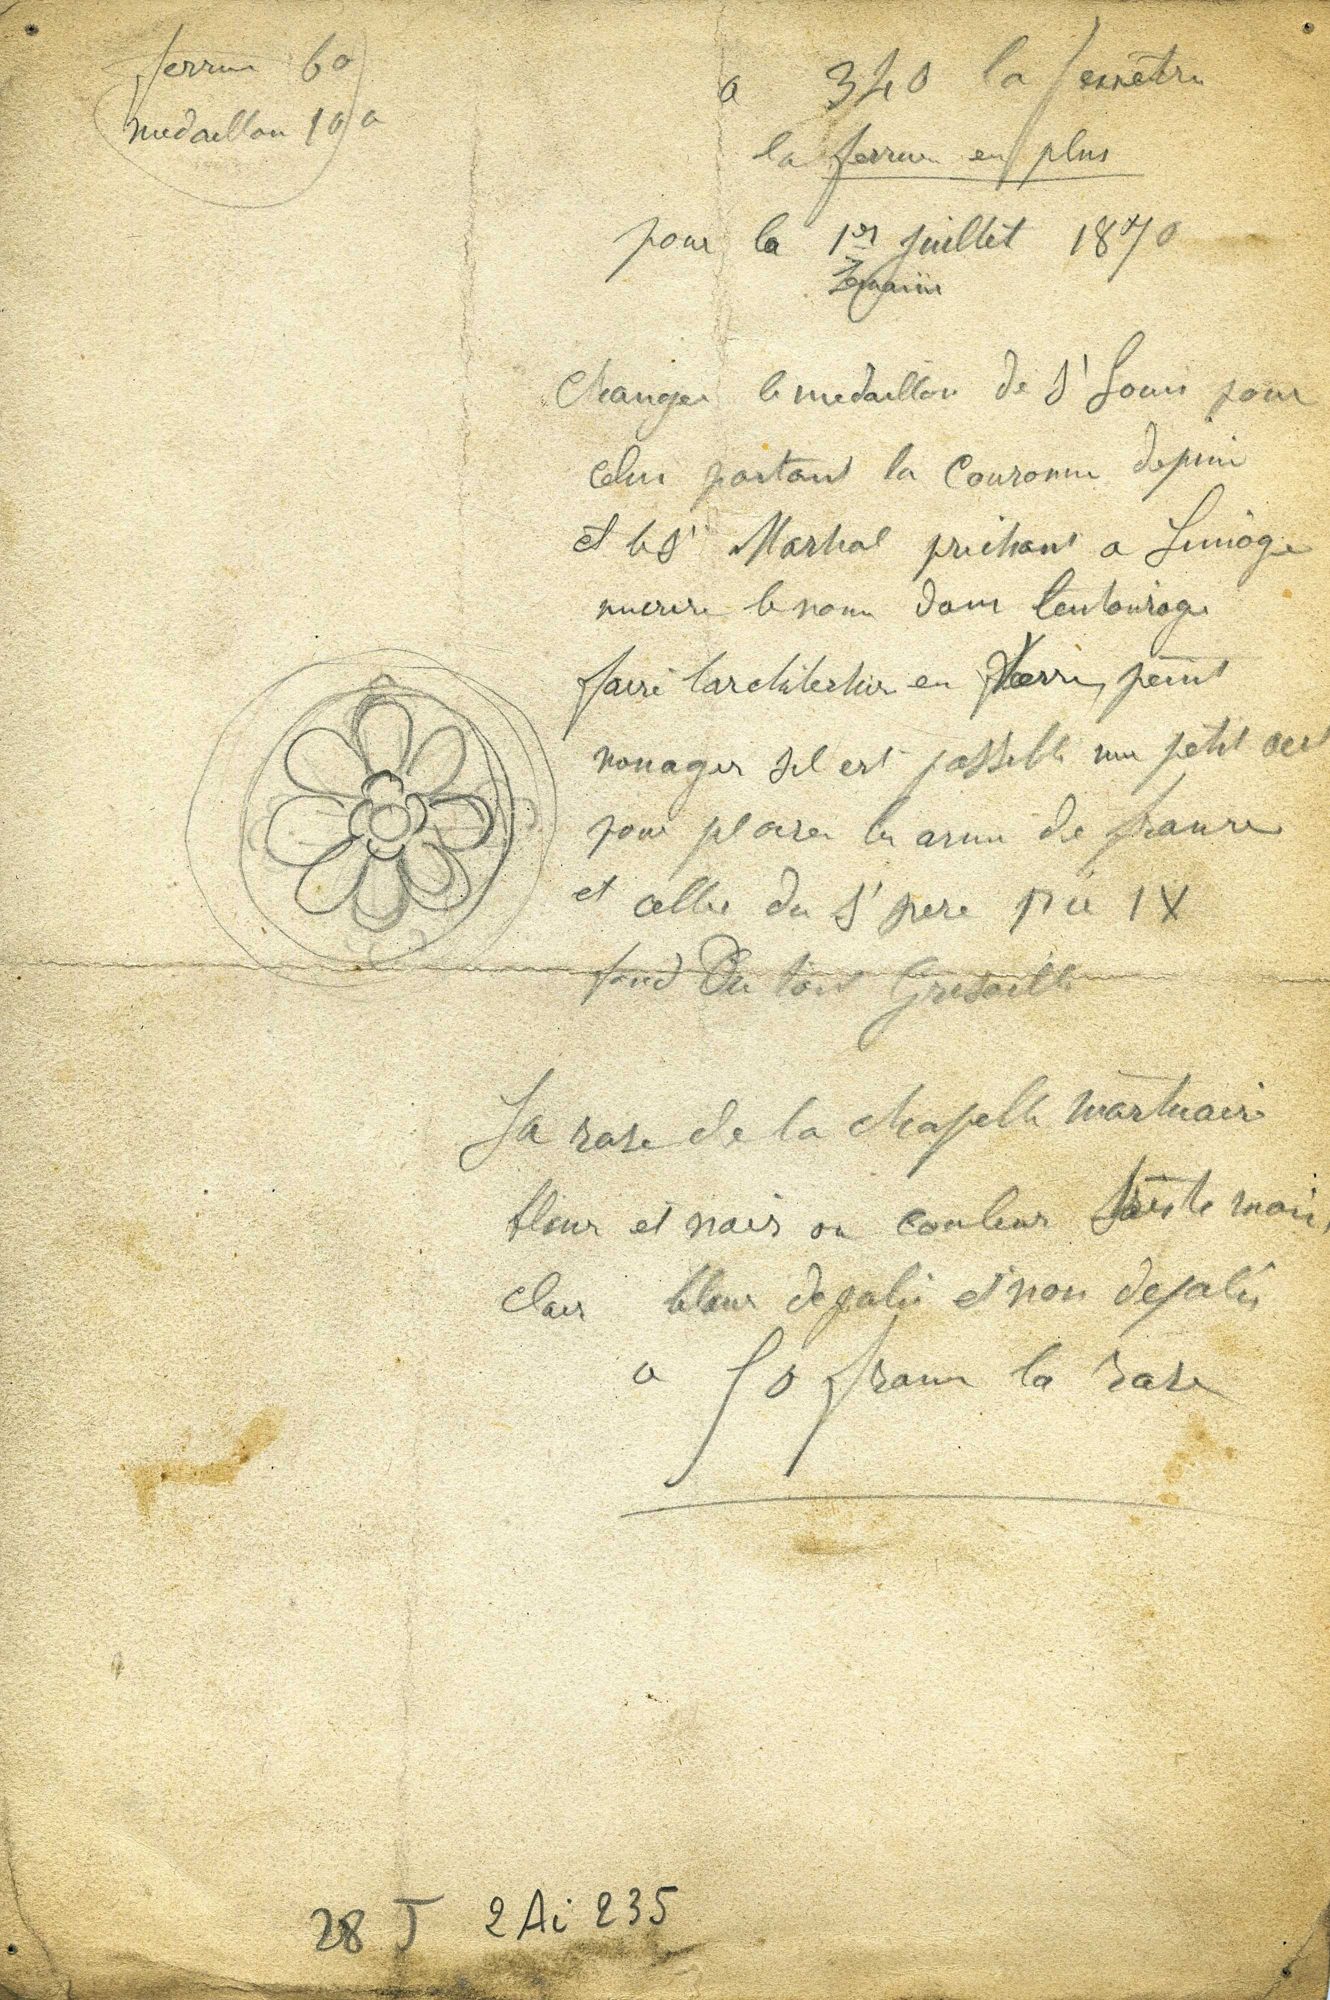 ferrure 60
medaillon 100
a 340 la fennêtre
la ferrure en plus
pour la 1er juillet 1870
changer le medaillon de St Louis pour
celui portant la Couronne depine
et le St Martial prêchant a Limoge
le nom dans lentourage
faire larchitecture en verre peint
menager sil est possible un petit
pour placer les arme de france
et celles du St pere Pie IX
fond Du tout Grisaille
La rose de la chapelle mortuaire
bleue et noir ou couleur triste mais
clair bleue depolie et non depolis
a 50 franc la rose
28 J 2Ai 235